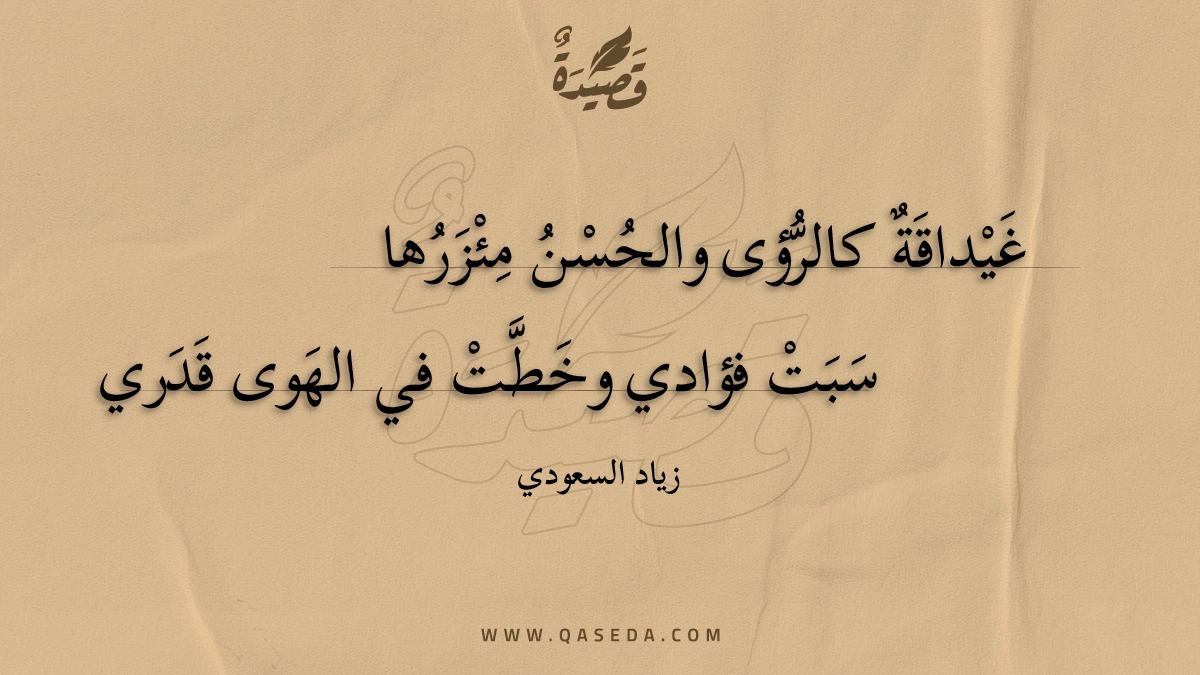 قَصِيدَةٌ
غَيْداقَةٌ كالرُّؤى والحُسْنُ مِئْزَرُها
سَبَتْ فؤادي وخَطَّتْ في الهَوى قَدَري
زياد السعودي
WWW.QASEDA.COM